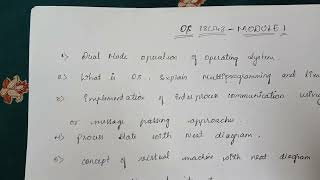 OS 18CS43 - MODULE 1
1) Dual Mode operation of operating system.
2) What is OS. Explain Multiprogramming and time
3) Implementation of Interprocess communication using
or message passing approaches.
4) Process State with Neat diagram.
5) concept of virtual machine with neat diagram